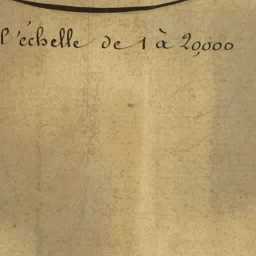 l'échelle de 1 à 20,000